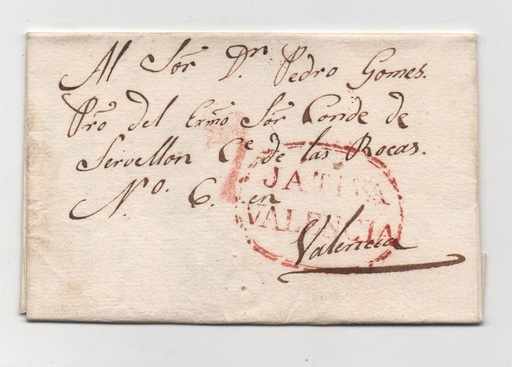 Al Sór Dn. Pedro Gomes.
Pro. del Exmo Sór Conde de
Sirvellon Ce. de las Rocas.
No. 6. en
JATIVA
VALENCIA
Valencia